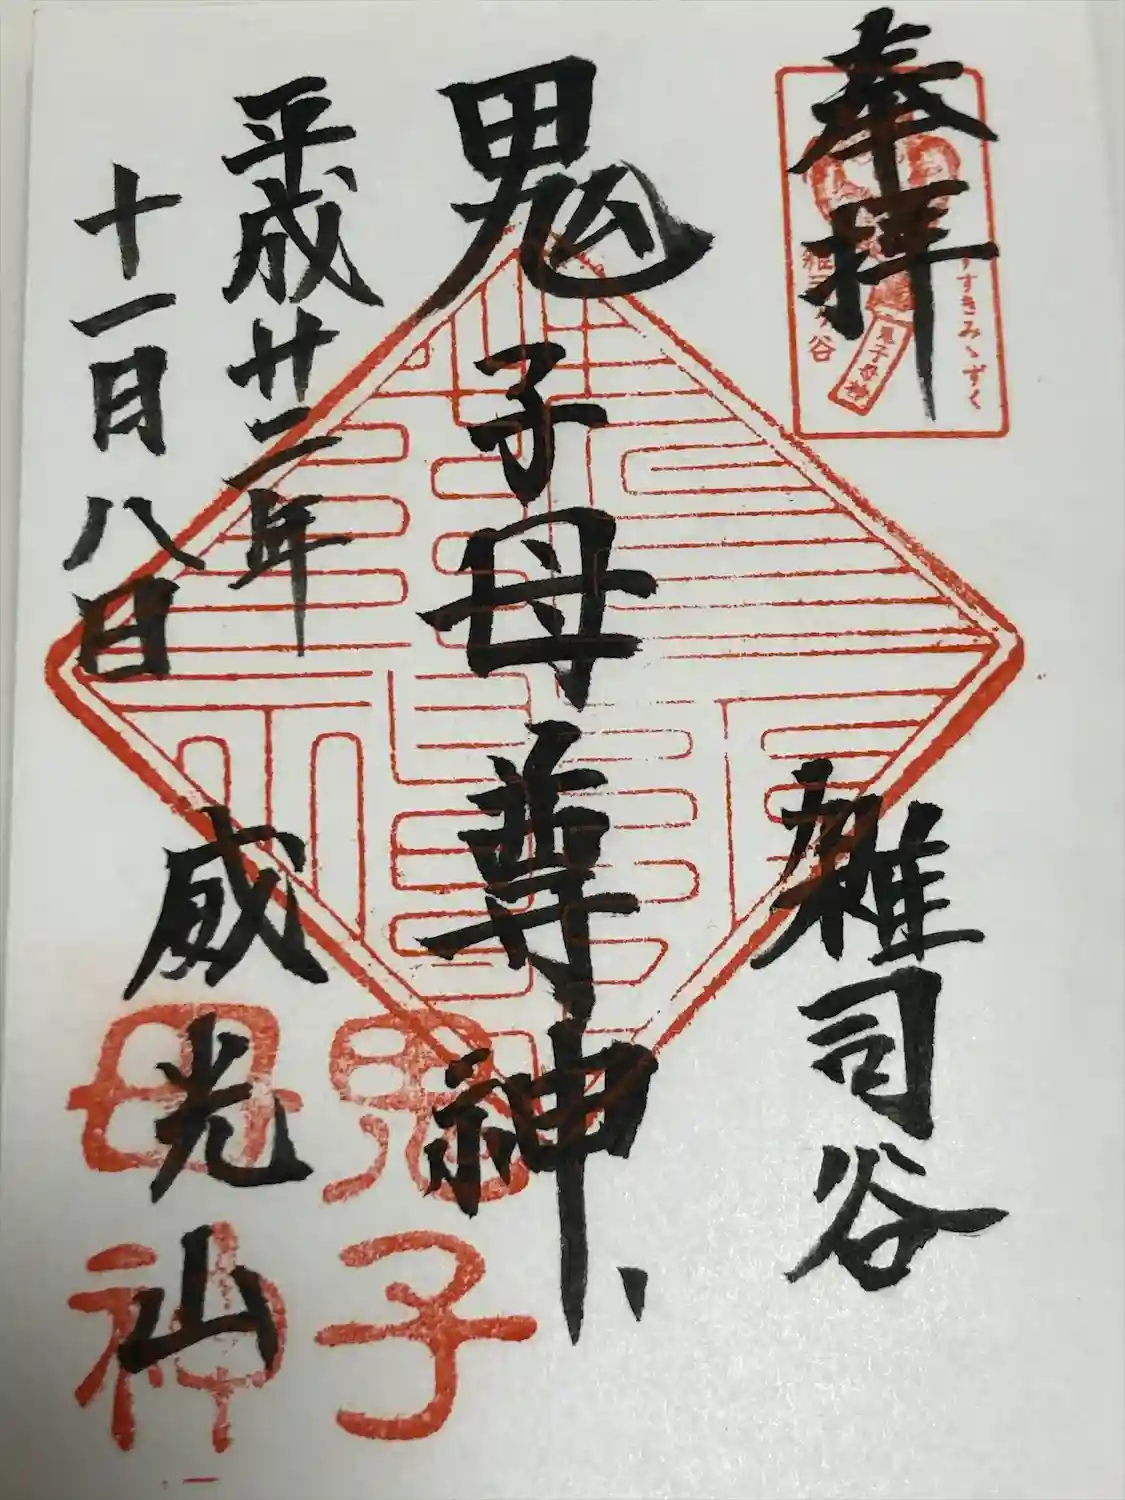 奉拝
すすきみゝずく
鬼子母神
雑司ヶ谷
雑司谷
鬼子母尊神、
平成廿二年
十一月八日
威光山
鬼子
母神